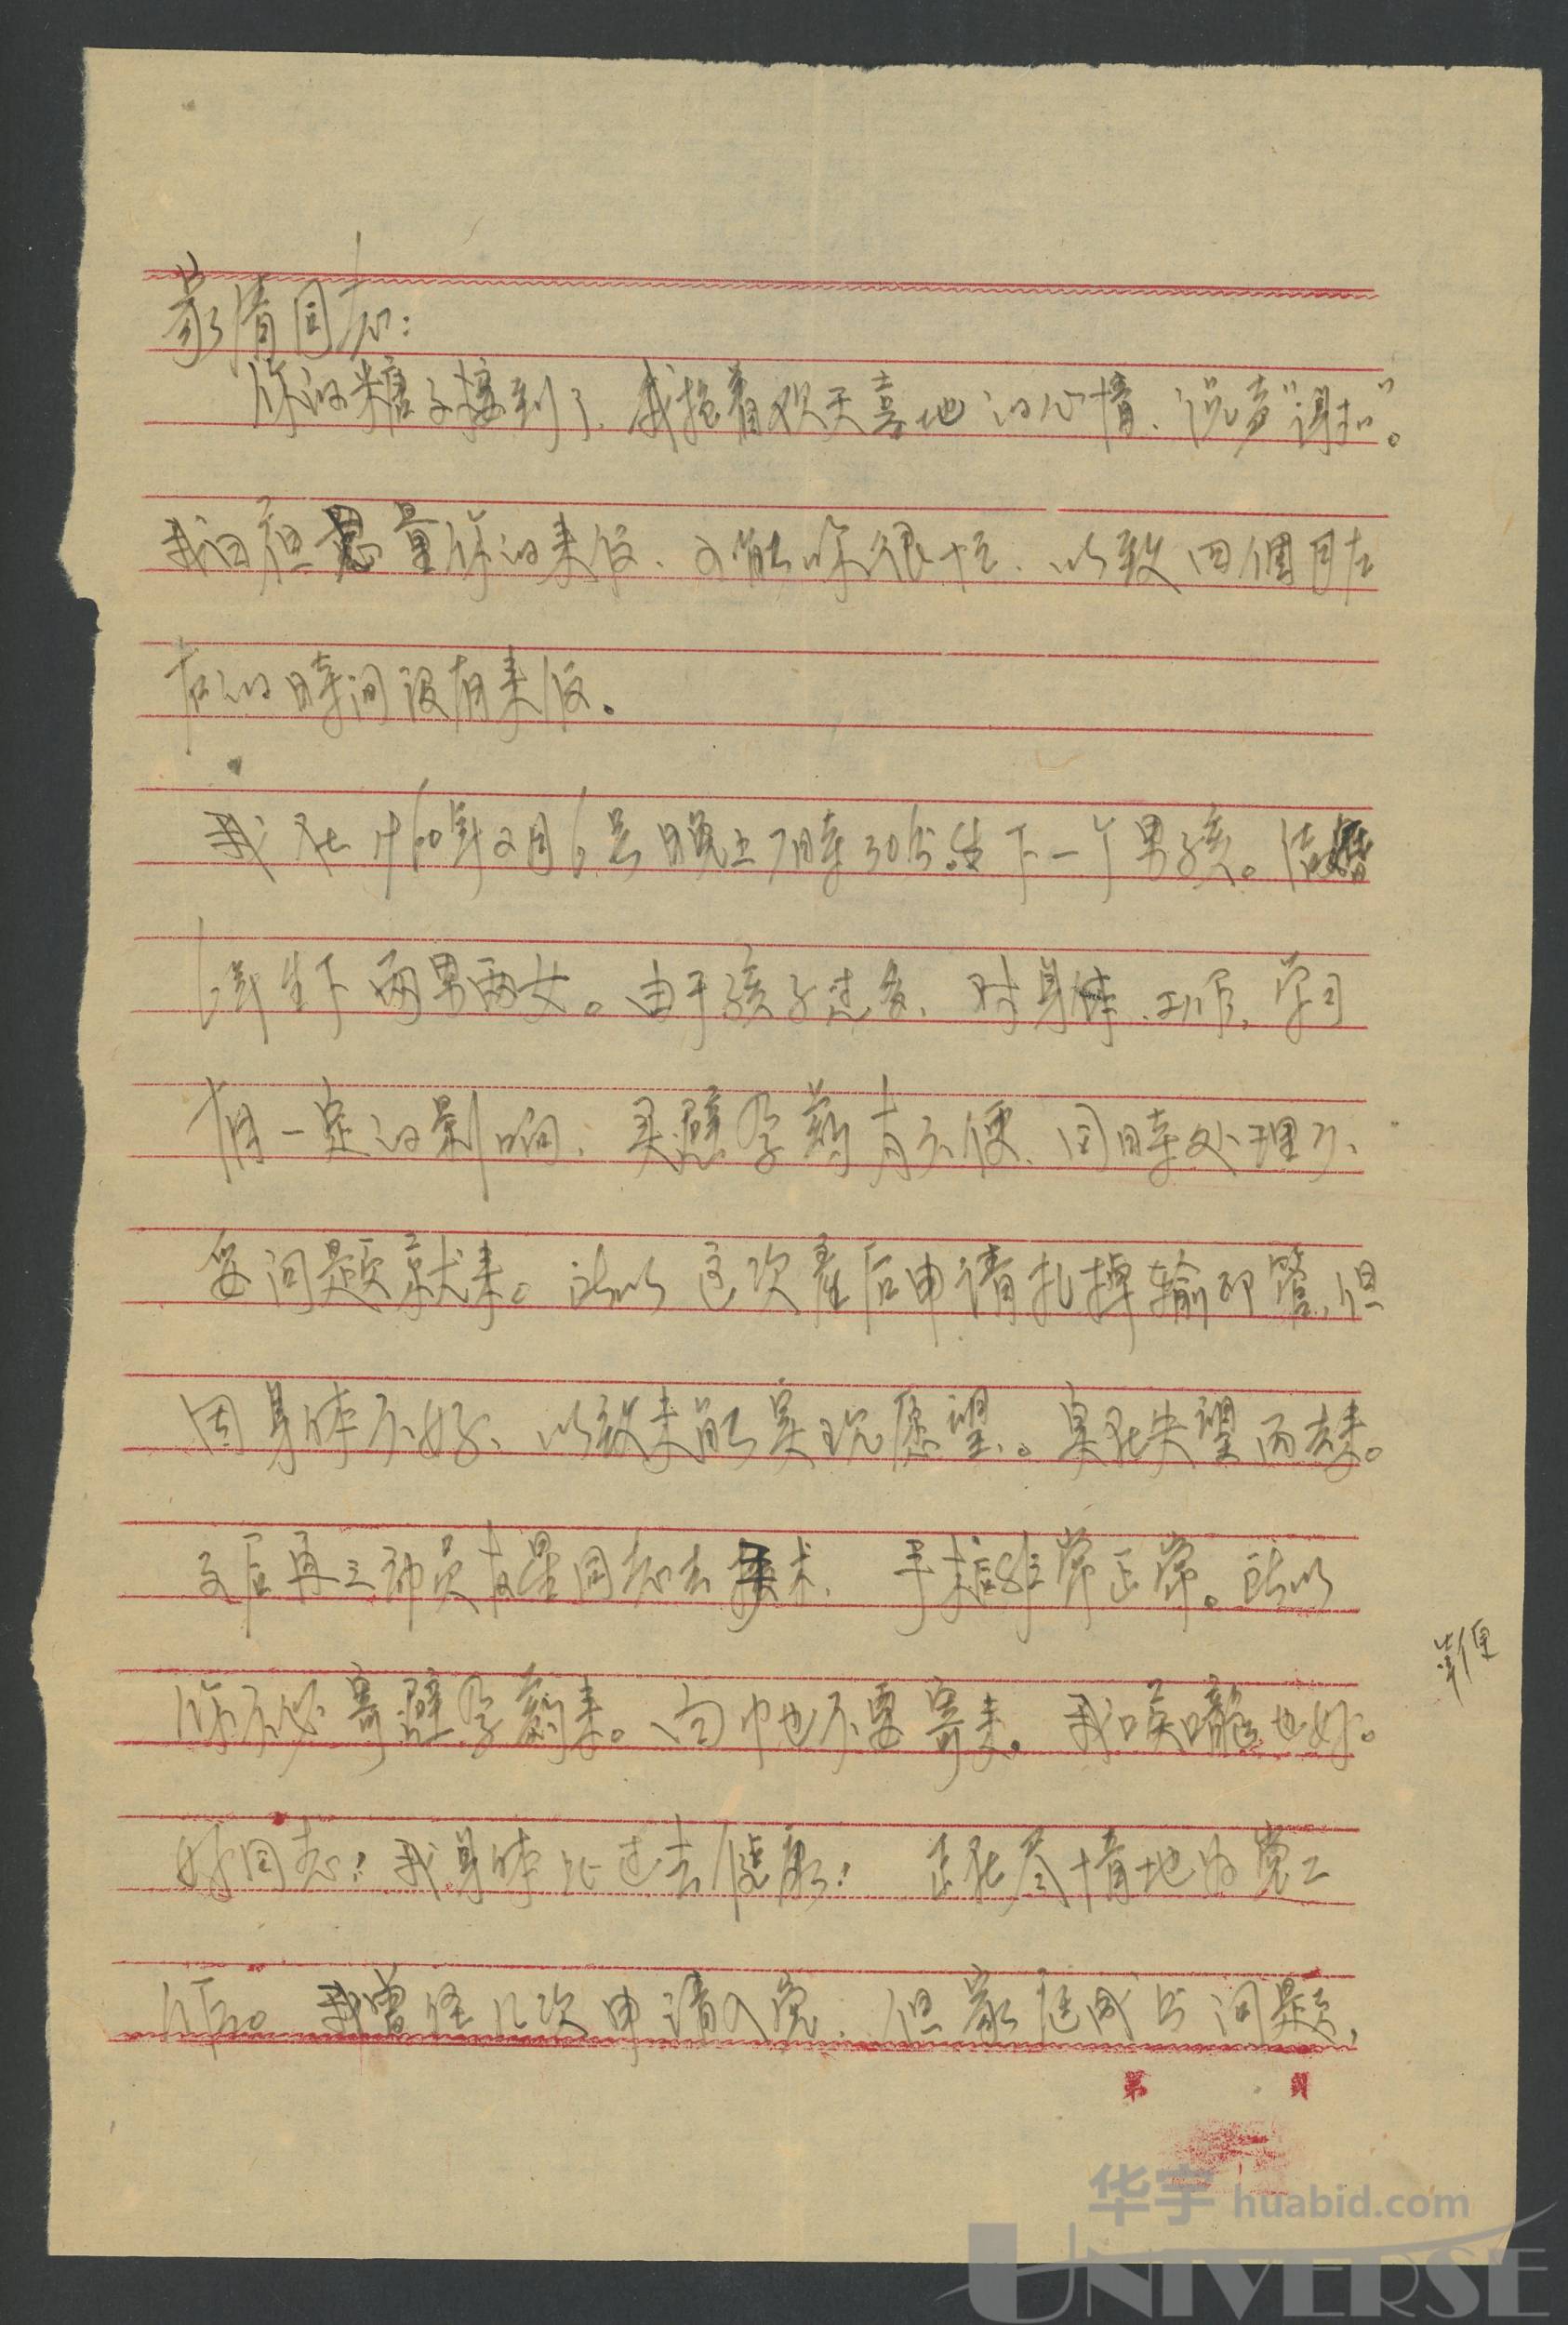 菊清同志：
你的糖已接到了、我抱着欢天喜地的心情、说声“谢"”。
我曰夜思量你的来信、可能你很忙、以致四個月左
右的時间没有来信。
我在1960年2月6号晚上7時30分生下一个男孩。结婚
6年生下两男两女。由于孩子过多、对身体、工作、学习
有一定的影响、买避孕药育不便、同時处理不
妥问题就来。所以这次產后申请扎掉输卵管，但
因身体不好、以致未能实现愿望。真是失望而去来。
之后再三动员 同志去手术、手术后非常正常。所以
你不必寄避孕药来。向巾也不要寄来。我喉嚨也好。
好同志！我身体比过去健康！正在尽情地为党工
作。我曾经几次申请入党、但家庭成份问题，
第 頁
华宇 huabid.com
UNIVERSE